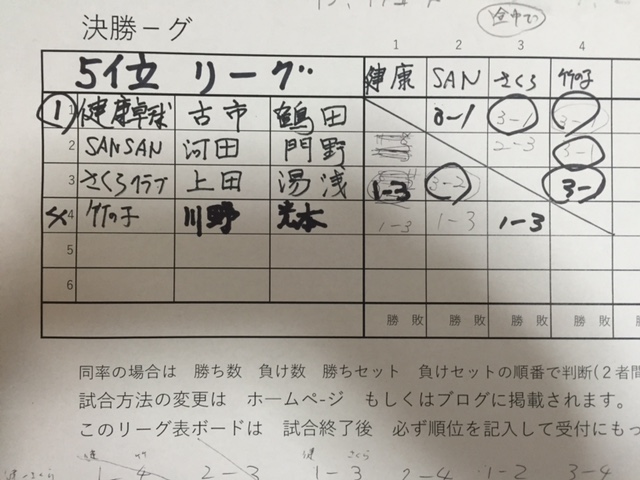 全中で
決勝－グ
1 2 3 4
5位 リーグ 健康 SAN さくら 竹の子
1 健康卓球 古市 鶴田 3-1 3-1 3-1
2 SANSAN 河田 門野 2-3 3-1
3 さくらクラブ 上田 湯浅 1-3 3-2 3-
4 竹の子 川野 1-3 1-3 1-3
5
6
勝 敗 勝 敗 勝 敗 勝 敗
同率の場合は 勝ち数 負け数 勝ちセット 負けセットの順番で判断(２者間
試合方法の変更は ホームぺ-ジ もしくはブログに掲載されます。
このリーグ表ボードは 試合終了後 必ず順位を記入して受付にもっ
1-4 2-3 1-3 2-4 1-2 3-4